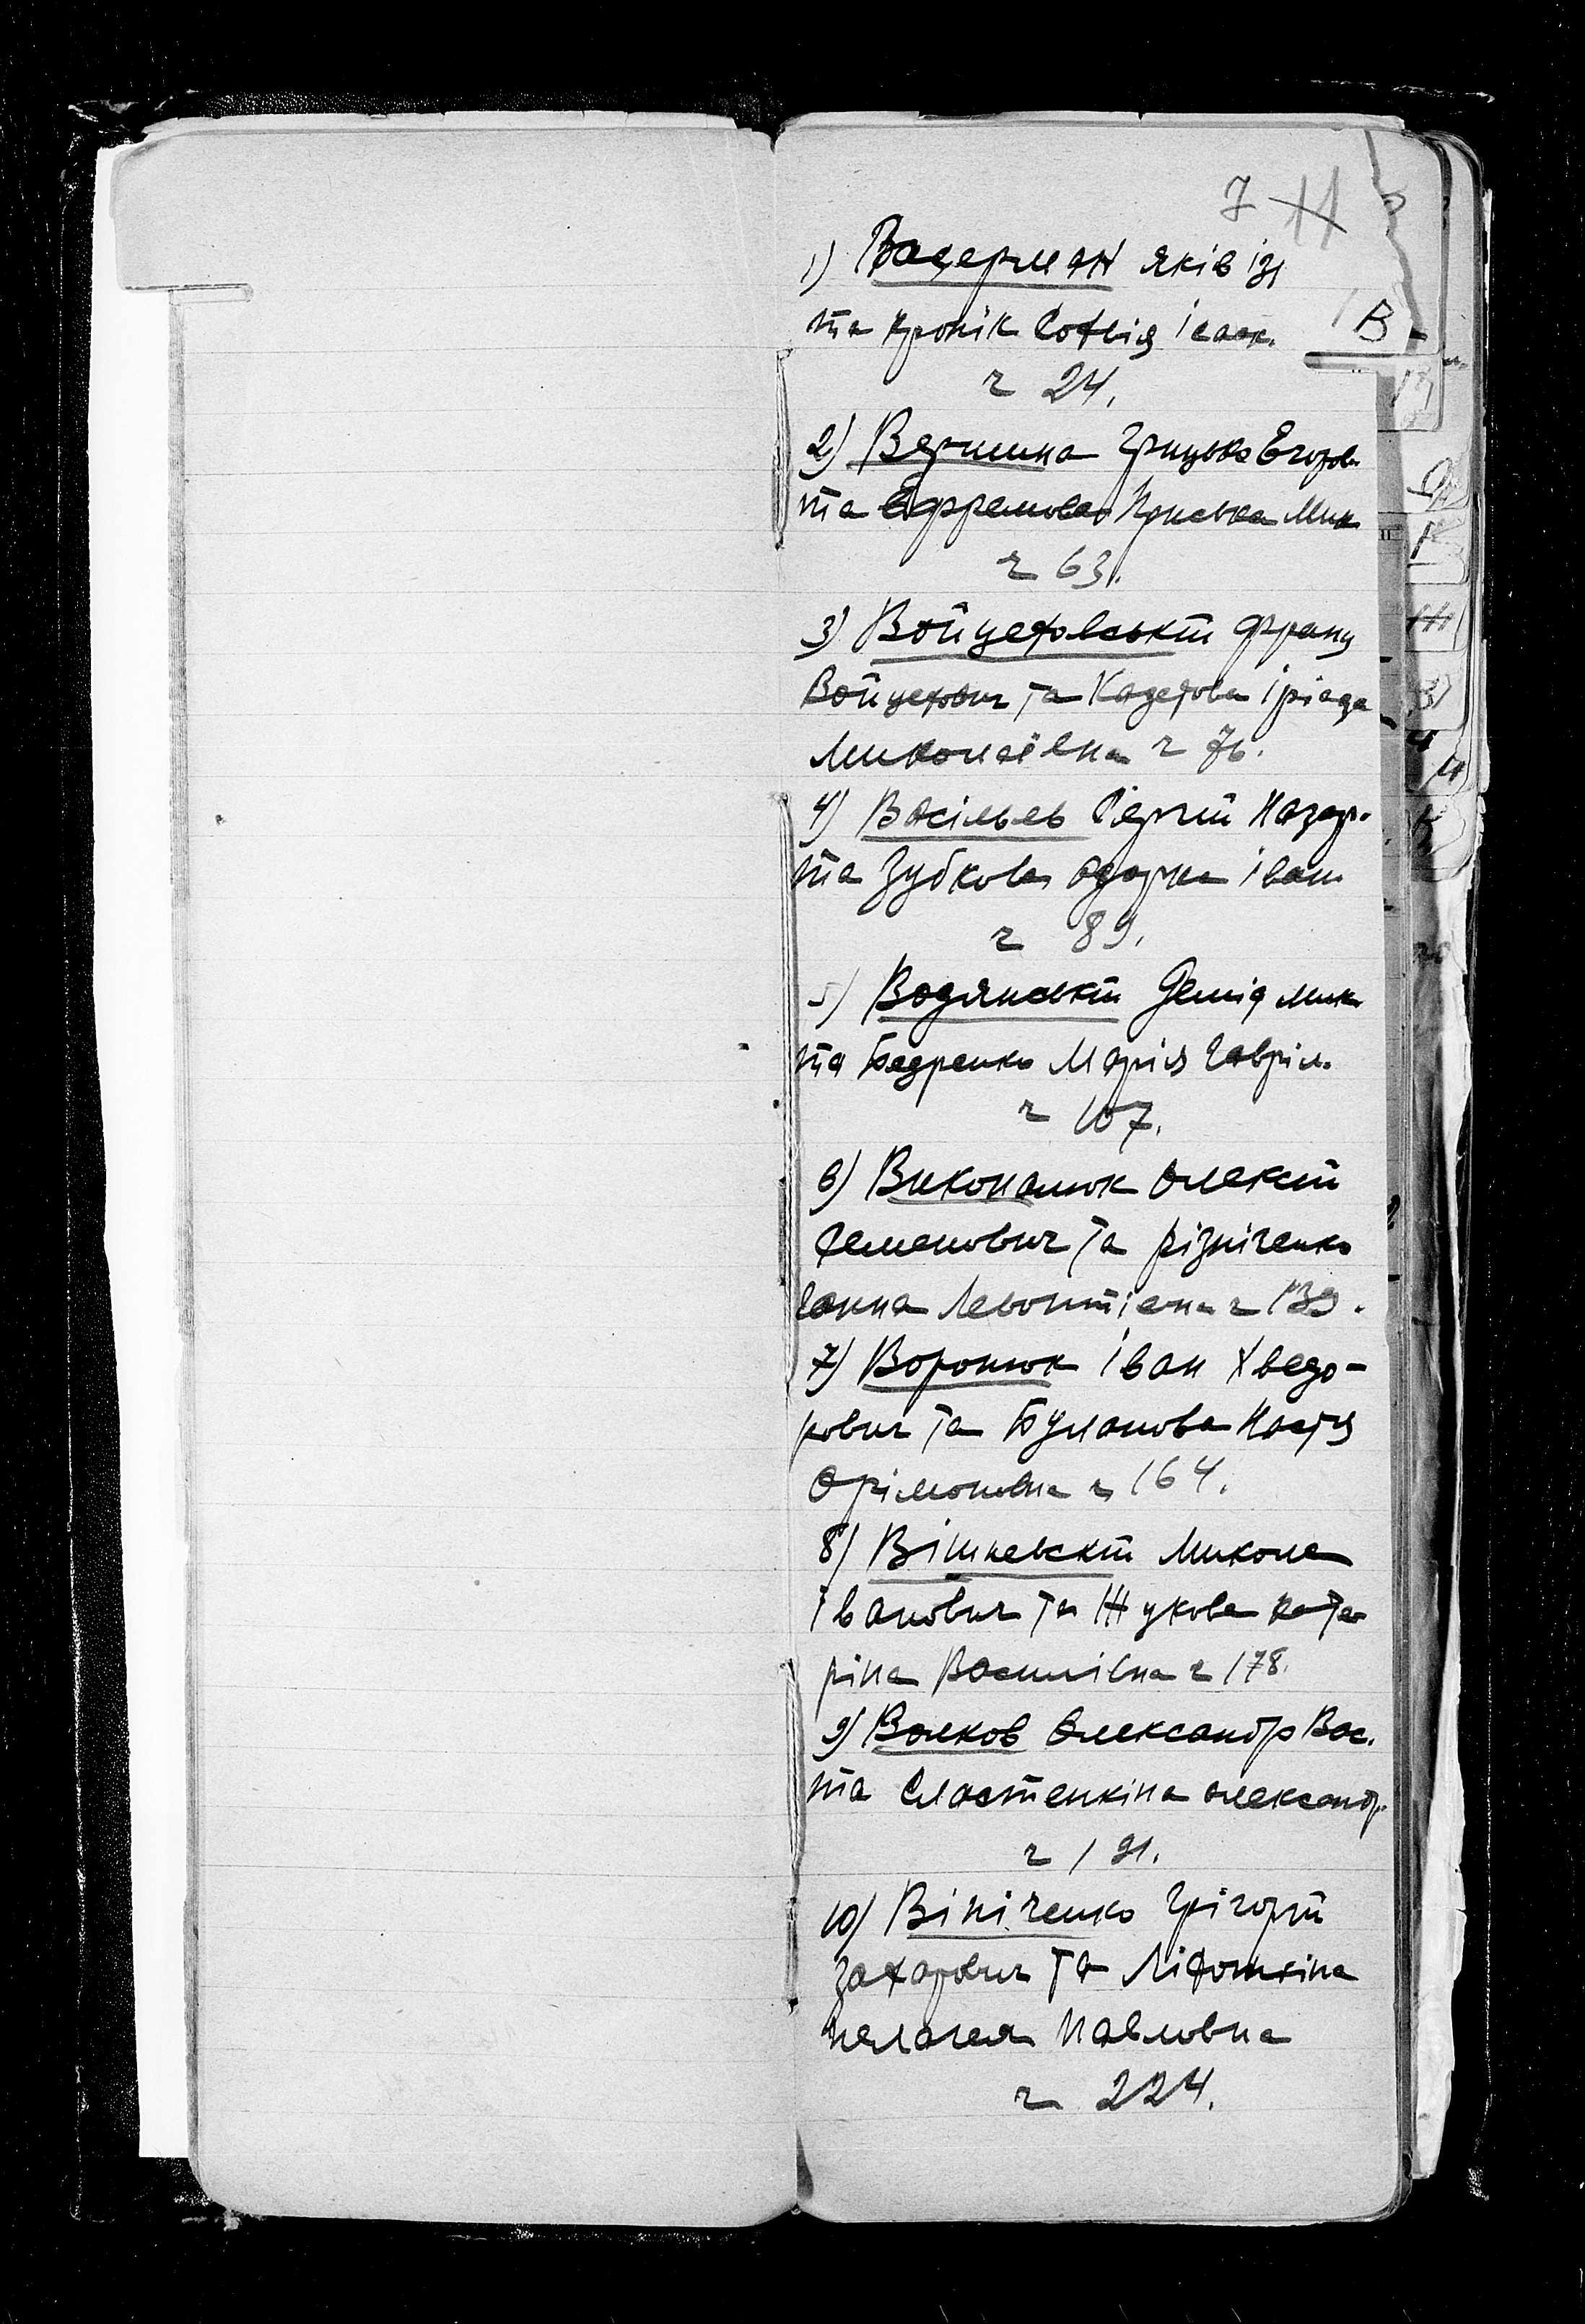 7 11
В
1) Вацерман Яків Із
та Кронік Софія Ісаак.
ч 24.
2) Вершина Грицько Егоров.
та Ефремова Приська Мик
ч 63.
3) Войцеховський Франц
Войцехович та Казетова Іріада
Миколаївна ч 76.
4) Васільев Сергій Назар.
та Зубкова Одарка Іван
ч 89.
5) Водянський Демід Мик
та Бедренко Марія Гавріл.
ч 107.
6) Виконанюк Олексій
Семенович та Різніченко
Ганна Левонтіевна ч 139.
7) Воронюк Іван Хведо-
рович та Буланова Настя
Фрімоновна ч 164.
8) Вішневский Микола
Іванович та Жукова Кате
ріна Василівна ч 178.
9) Волков Олександр Вас.
та Сластенкіна Олександ.
ч 191.
10) Вініченко Грігорій
Захарович та Літошкіна
Пелагея Павловна
ч 224.